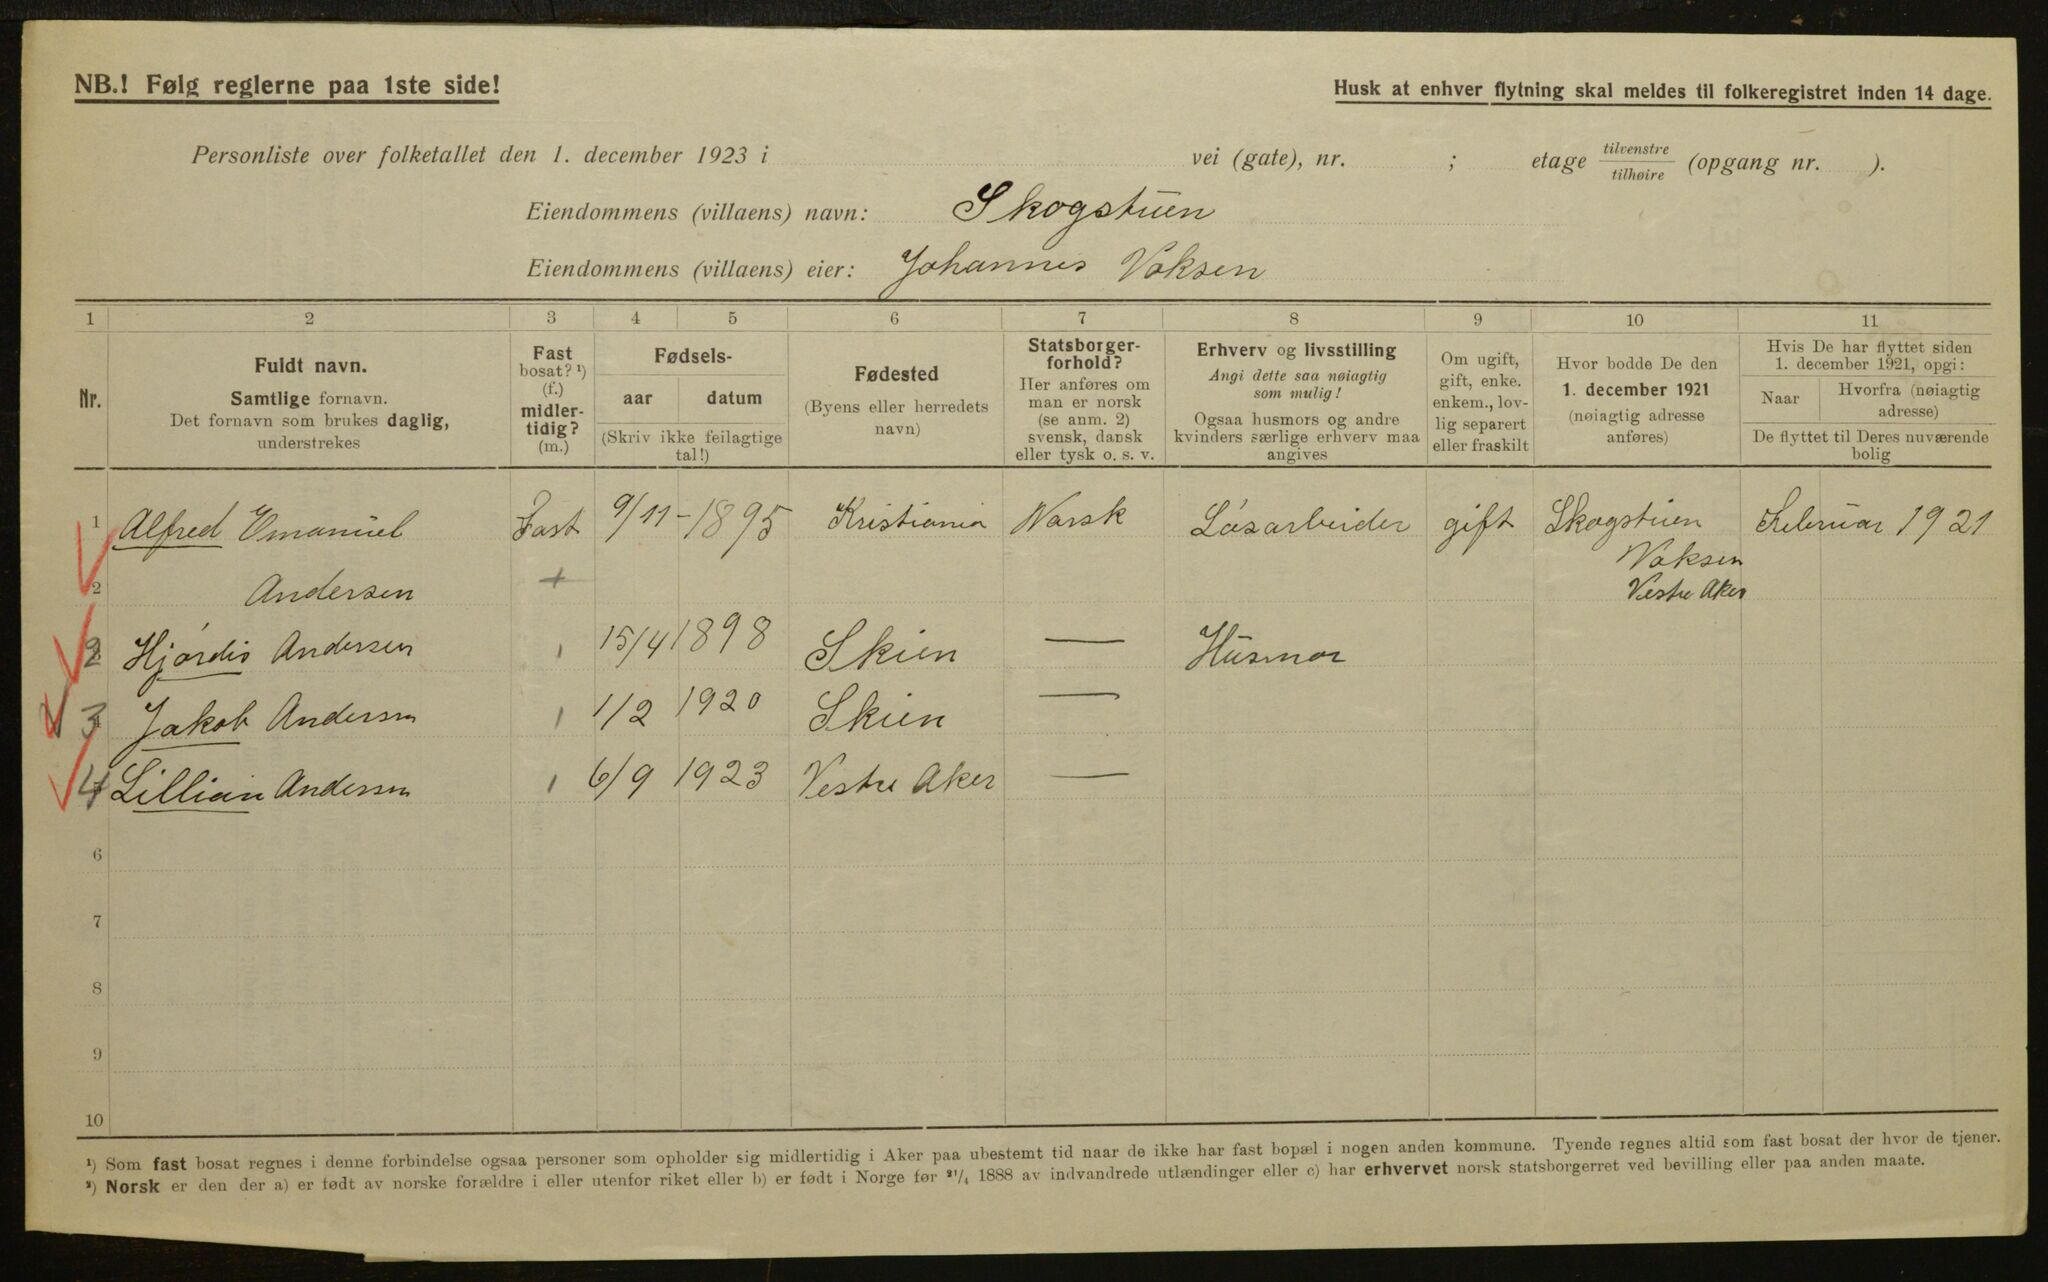 NB.! Følg reglerne paa 1ste side!
Husk at enhver flytning skal meldes til folkeregistret inden 14 dage.
Personliste over folketallet den 1. december 1923 i vei (gate), nr. ; etage tilvenstre / tilhøire (opgang nr. ).
Eiendommens (villaens) navn: Skogstuen
Eiendommens (villaens) eier: Johannes Voksen
1 2 3 4 5 6 7 8 9 10 11
Nr.
Fuldt navn.
Samtlige fornavn.
Det fornavn som brukes daglig,
understrekes
Fast
bosat? ¹)
(f.)
midler-
tidig?
(m.)
Fødsels-
aar datum
(Skriv ikke feilagtige
tal!)
Fødested
(Byens eller herredets
navn)
Statsborger-
forhold?
Her anføres om
man er norsk
(se anm. 2)
svensk, dansk
eller tysk o. s. v.
Erhverv og livsstilling
Angi dette saa nøiagtig
som mulig!
Ogsaa husmors og andre
kvinders særlige erhverv maa
angives
Om ugift,
gift, enke.
enkem., lov-
lig separert
eller fraskilt
Hvor bodde De den
1. december 1921
(nøiagtig adresse
anføres)
Hvis De har flyttet siden
1. december 1921, opgi:
Naar
Hvorfra (nøiagtig
adresse)
De flyttet til Deres nuværende
bolig
1 Alfred Emanuel Fast 9/11 - 1895 Kristiania Norsk Løsarbeider gift Skogstuen Februar 1921
Voksen
2 Andersen + Vestre Aker
2 Hjørdis Andersen 15/4 1898 Skien — Husmor
3 Jakob Andersen 1/2 1920 Skien —
4 Lillian Andersen 6/9 1923 Vestre Aker —
6
7
8
9
10
¹) Som fast bosat regnes i denne forbindelse ogsaa personer som opholder sig midlertidig i Aker paa ubestemt tid naar de ikke har fast bopæl i nogen anden kommune. Tyende regnes altid som fast bosat der hvor de tjener.
²) Norsk er den der a) er født av norske forældre i eller utenfor riket eller b) er født i Norge før ²¹/₄ 1888 av indvandrede utlændinger eller c) har erhvervet norsk statsborgerret ved bevilling eller paa anden maate.